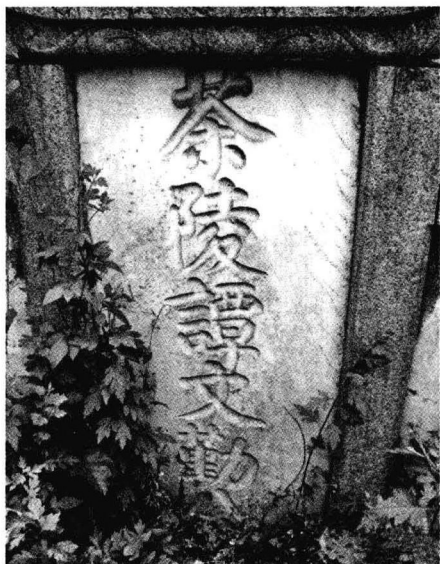 茶陵譚文勤